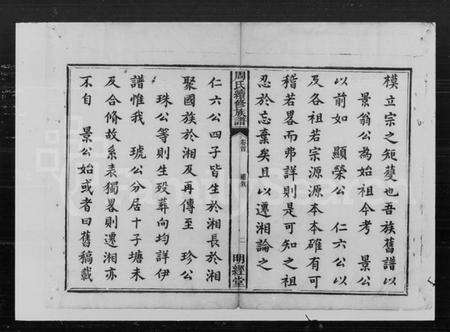 模立宗之矩矱也吾族舊譜以
景翁公為始祖今考 景公
以前如 顯榮公 仁六公以
及各祖若宗源源本本確有可
稽若畧而弗詳則是可知之祖
忍於忘棄矣且以遷湘論之
周氏續修族譜
卷首
明經堂
仁六公四子皆生於湘長於湘
聚國族於湘及再傳至 珍公
珠公等則生歿葬向均詳伊
譜惟我 琥公分居十子塘未
及合修故系表獨畧則遷湘亦
不自 景公始或者曰舊稿載